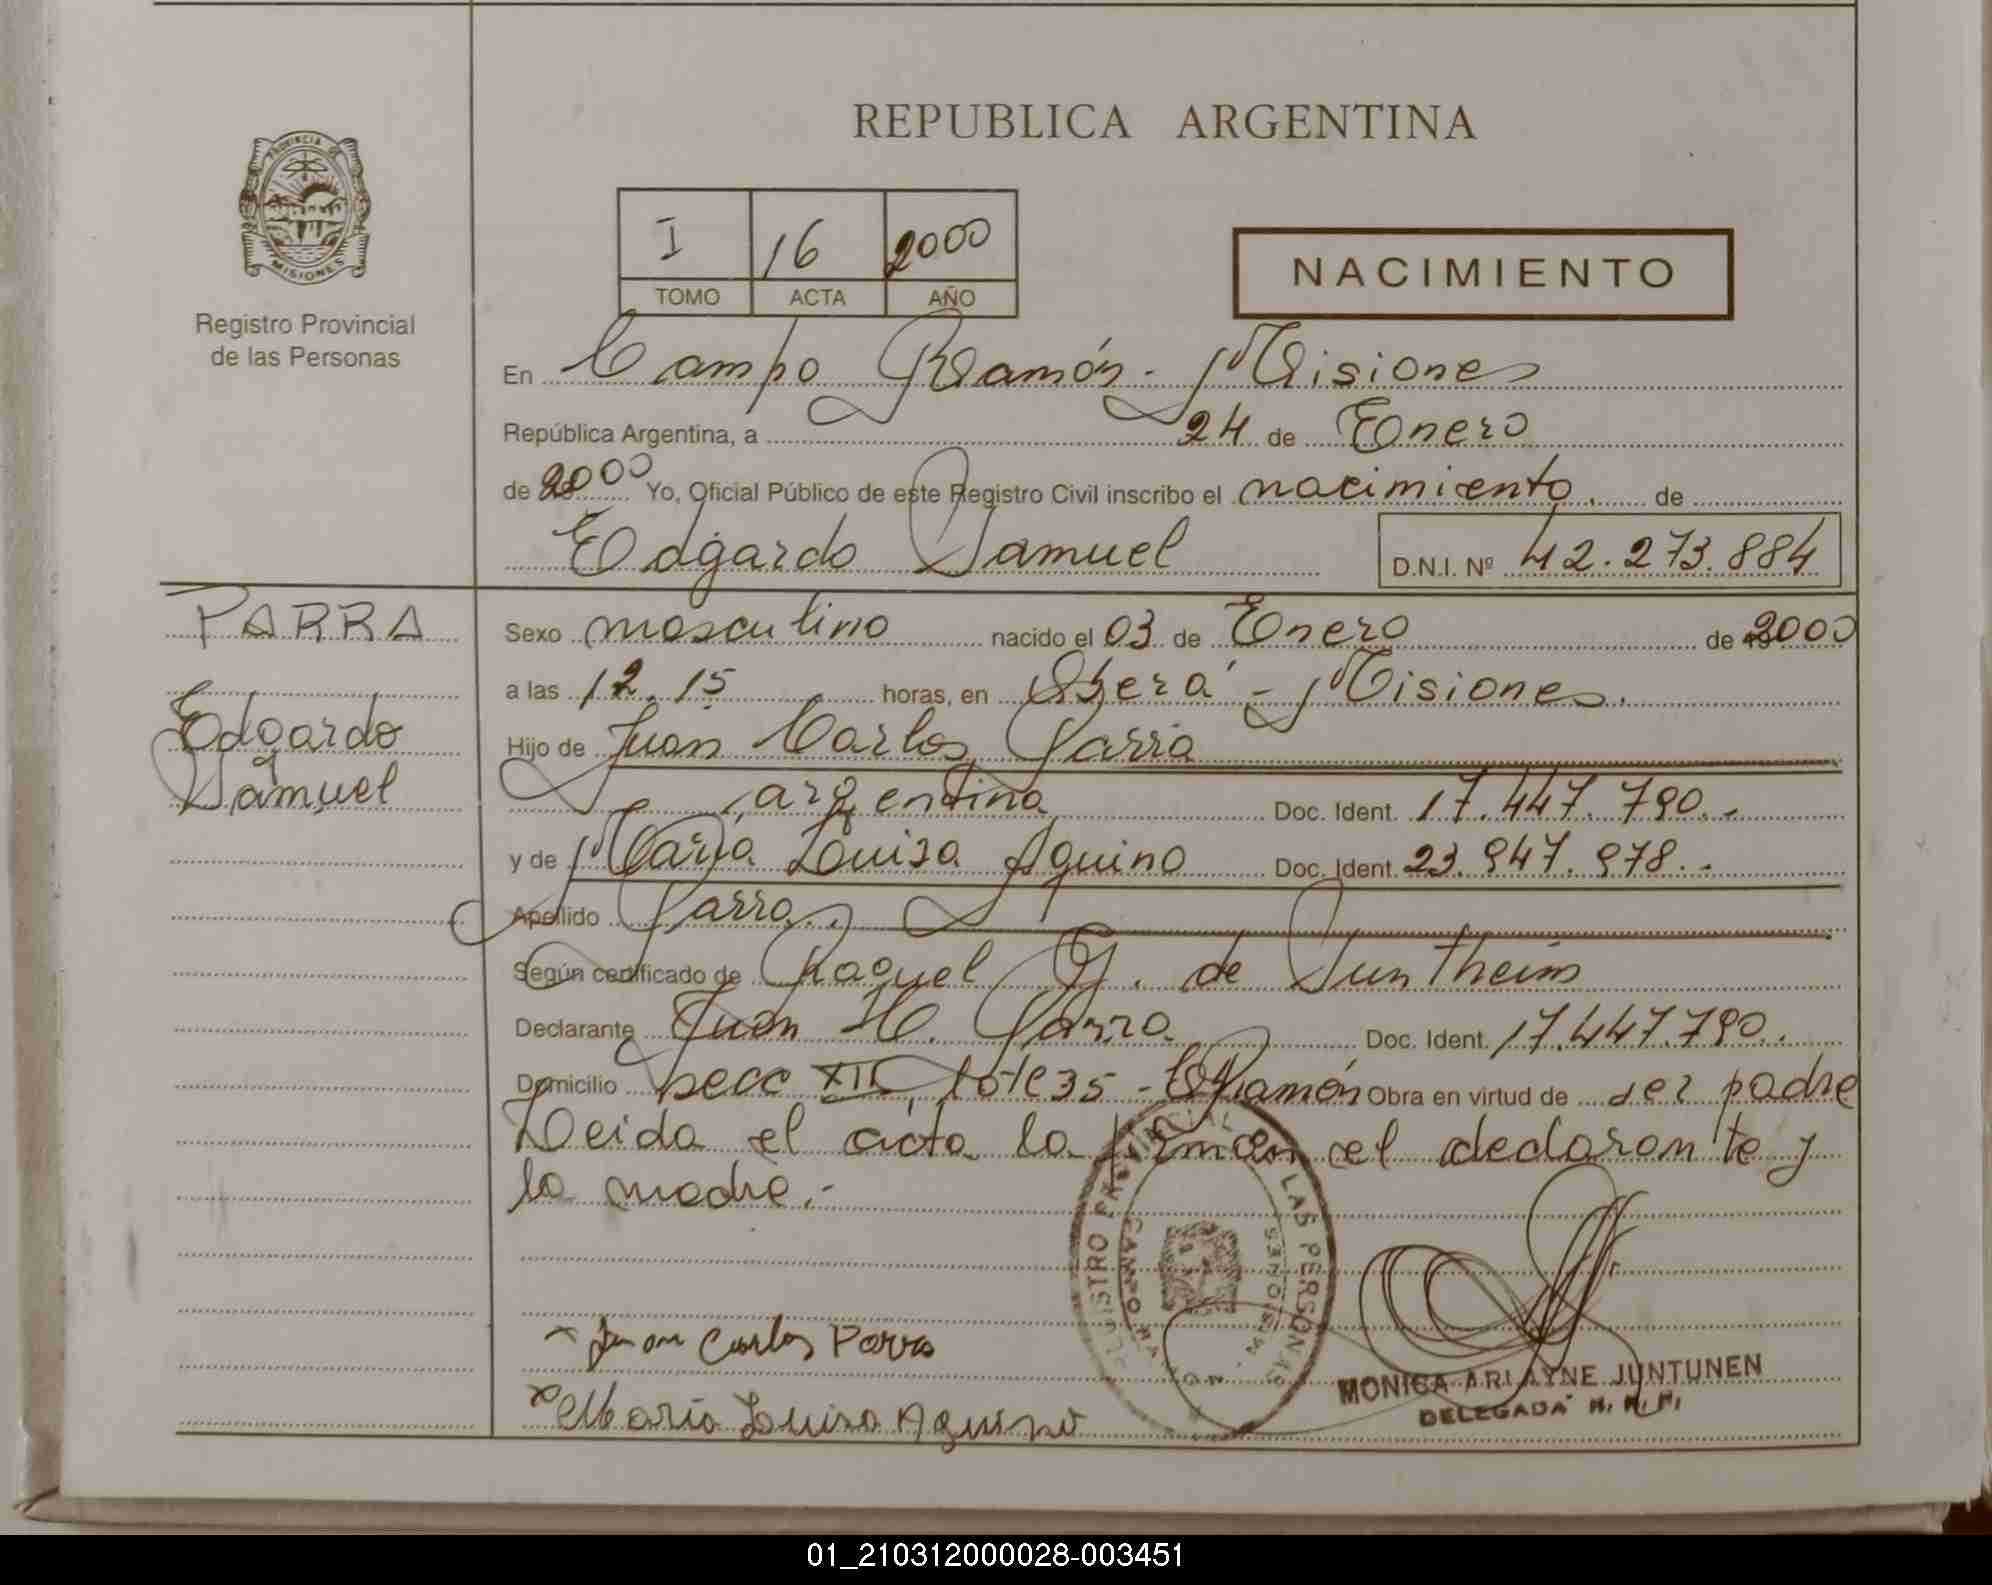 REPUBLICA ARGENTINA
PROVINCIA DE
MISIONES
Registro Provincial
de las Personas
I 16 2000
TOMO ACTA AÑO
NACIMIENTO
En Campo Ramón - Misiones
República Argentina, a 24 de Enero
de 2000 Yo, Oficial Público de este Registro Civil inscribo el nacimiento. de
Edgardo Samuel D.N.I. Nº 42.273.884
PARRA
Edgardo
Samuel
Sexo masculino nacido el 03 de Enero de 2000
a las 12.15 horas, en Oberá - Misiones.
Hijo de Juan Carlos Parra
, argentina Doc. Ident. 17.447.790.-
y de María Louisa Aquino Doc. Ident. 23.947.978.-
Apellido Parra.
Según certificado de Raquel G. de Suntheim
Declarante Juan Parra Doc. Ident. 17.447.790.
Domicilio secc XII, lote 35 - C Ramón Obra en virtud de der padre
Leida el acta la firman el declarante y
la madre.-
REGISTRO PROVINCIAL DE LAS PERSONAS
CAMPO RAMON - MISIONES
Juan Carlos Parra
Maria Louisa Aquino
MONICA ARLAYNE JUNTUNEN
DELEGADA
01_210312000028-003451